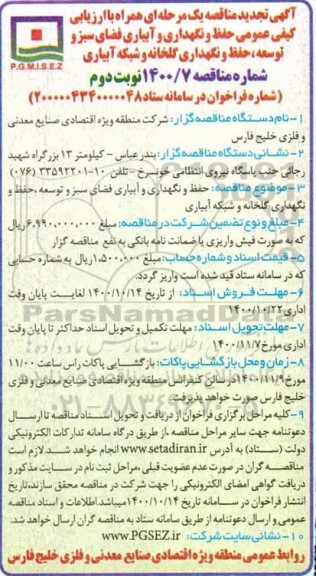 آگهی تجدید مناقصه یک مرحله ای همراه با ارزیابی
کیفی عمومی حفظ و نگهداری و آبیاری فضای سبز و
توسعه ، حفظ و نگهداری گلخانه و شبکه آبیاری
P.G.M.I.S.E.Z
شماره مناقصه ۱۴۰۰/۷ نوبت دوم
(شماره فراخوان در سامانه ستاد ۲۰۰۰۰۰۴۳۴۰۰۰۰۰۴۸)
۱- نام دستگاه مناقصه گزار: شرکت منطقه ویژه اقتصادی صنایع معدنی
و فلزی خلیج فارس
۲- نشانی دستگاه مناقصه گزار: بندرعباس - کیلومتر ۱۳ بزرگراه شهید
رجائی جنب پاسگاه نیروی انتظامی خونسرخ - تلفن ۱۰-۳۳۵۹۲۲۰۱ (۰۷۶)
۳- موضوع مناقصه: حفظ و نگهداری و آبیاری فضای سبز و توسعه ، حفظ و
نگهداری گلخانه و شبکه آبیاری
۴- مبلغ و نوع تضمین شرکت در مناقصه: مبلغ ۶,۹۹۰,۰۰۰,۰۰۰ ریال
که به صورت فیش واریزی یا ضمانت نامه بانکی به نفع مناقصه گزار
۵- قیمت اسناد و شماره حساب: مبلغ ۱,۵۰۰,۰۰۰ ریال به شماره حسابی
که در سامانه ستاد قید شده است واریز گردد.
۶- مهلت فروش اسناد: از تاریخ ۱۴۰۰/۱۰/۱۴ لغایت پایان وقت
اداری ۱۴۰۰/۱۰/۲۲
۷- مهلت تحویل اسناد: مهلت تکمیل و تحویل اسناد حداکثر تا پایان وقت
اداری مورخ ۱۴۰۰/۱۱/۷
۸- زمان و محل بازگشایی پاکات: بازگشایی پاکات راس ساعت ۱۱/۰۰
مورخ ۱۴۰۰/۱۱/۹ در سالن کنفرانس منطقه ویژه اقتصادی صنایع معدنی و فلزی
خلیج فارس صورت خواهد پذیرفت.
۹- کلیه مراحل برگزاری فراخوان از دریافت و تحویل اسناد مناقصه تا ارسال
دعوتنامه جهت سایر مراحل مناقصه ، از طریق درگاه سامانه تدارکات الکترونیکی
دولت (ستاد) به آدرس www.setadiran.ir انجام خواهد شد. لازم است
مناقصه گران در صورت عدم عضویت قبلی ، مراحل ثبت نام در سایت مذکور و
دریافت گواهی امضای الکترونیکی را جهت شرکت در مناقصه محقق سازند، تاریخ
انتشار فراخوان در سامانه تاریخ ۱۴۰۰/۱۰/۱۴ میباشد. اطلاعات و اسناد مناقصه
عمومی و ارسال دعوتنامه از طریق سامانه ستاد به مناقصه گران ارسال خواهد شد.
۱۰- نشانی سایت شرکت: www.PGSEZ.ir
روابط عمومی منطقه ویژه اقتصادی صنایع معدنی و فلزی خلیج فارس